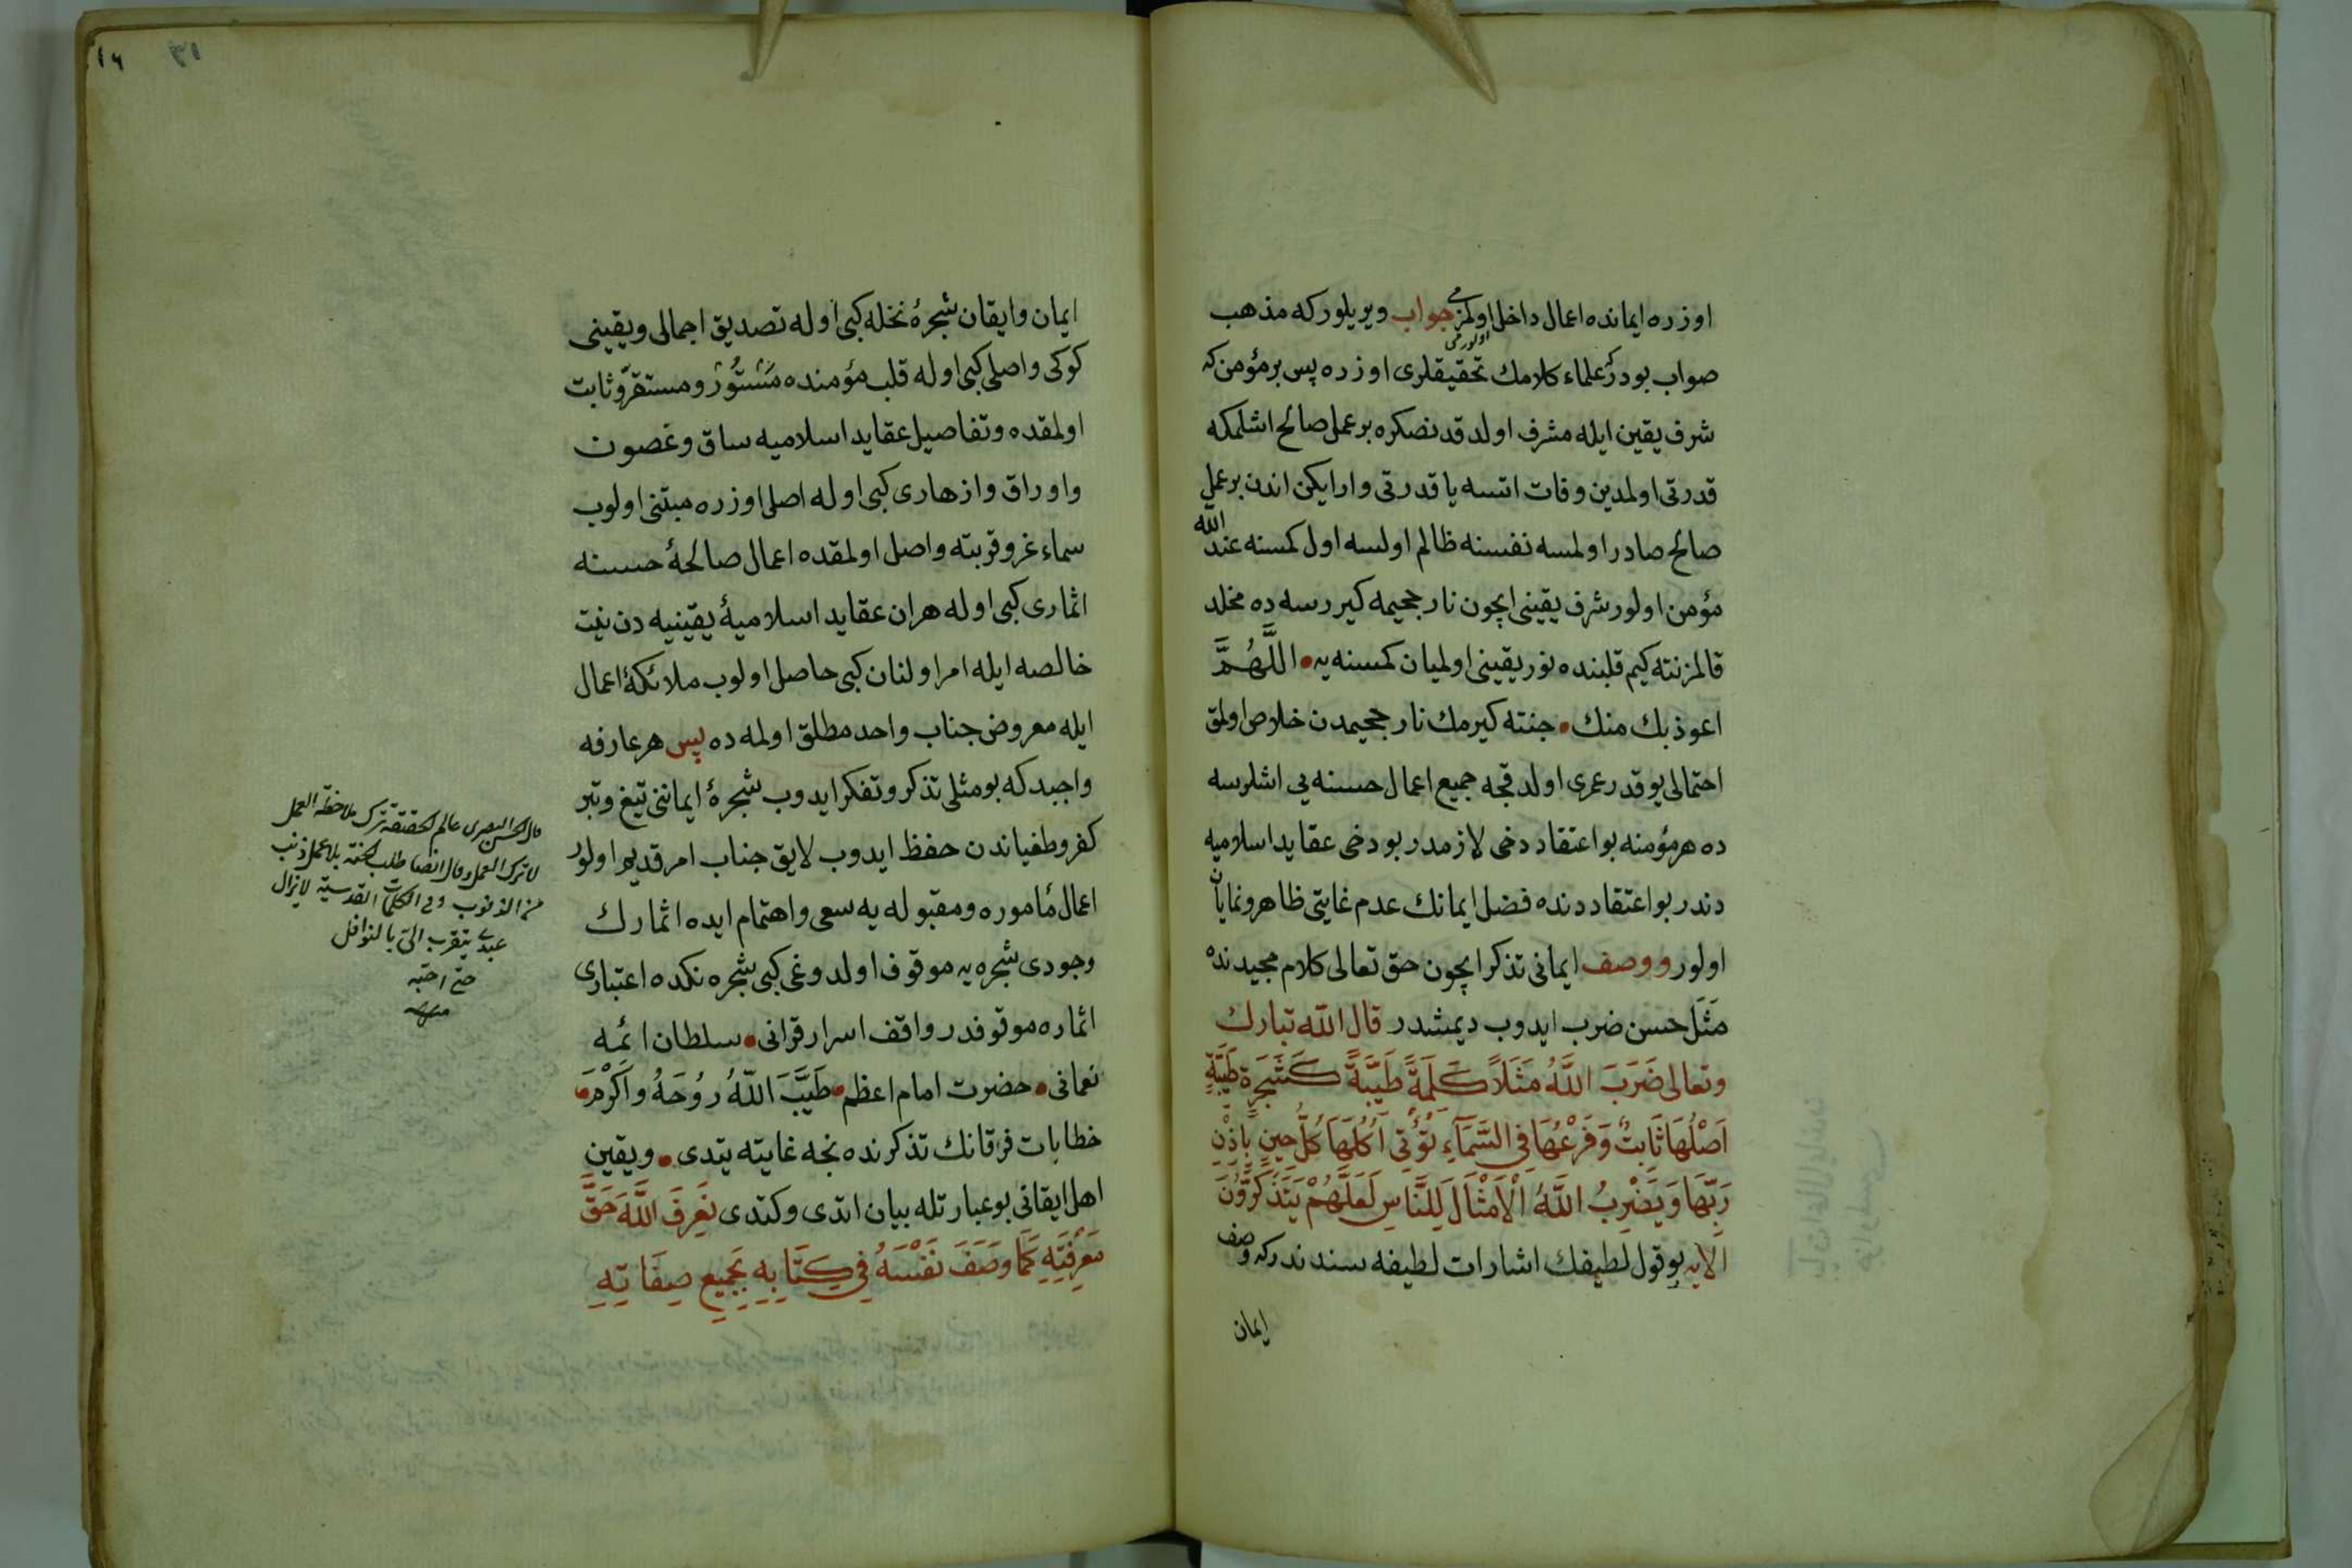 اوزره ایمانده اعمال داخل اولمز می جواب ویریلور که مذهب
اولورمی
صواب بودر که علماء کلامك تحقیقلری اوزره پس بر مؤمن که
شرف یقین ایله مشرف اولدقدنصکره بر عمل صالح اشلمکه
قدرتی اولمدین وفات اتسه یا قدرتی وارایکن اندن بر عمل
صالح صادر اولمسه نفسنه ظالم اولسه اول کمسنه عند الله
مؤمن اولور شرف یقینی ایچون نار جحیمه کیررسه ده مخلد
قالمز نته کیم قلبنده نور یقینی اولمیان کمسنه یه اللَّهُمَّ
اعوذ بك منك جنته کیرمك نار جحیمدن خلاص اولمق
احتمالی یوقدر عمری اولدقجه جمیع اعمال حسنه یی اشلرسه
ده هر مؤمنه بو اعتقاد دخی لازمدر بو دخی عقاید اسلامیه
دندر بو اعتقاد دنده فضل ایمانك عدم غایتی ظاهر ونمایان
اولور ووصف ایمانی تذکر ایچون حق تعالی کلام مجیدنده
مَثَل حسن ضرب ایدوب دیمشدر قال الله تبارك
وتعالی ضَرَبَ اللَّهُ مَثَلاً كَلِمَةً طَيِّبَةً كَشَجَرَةٍ طَيِّبَةٍ
اَصْلُهَا ثَابِتٌ وَفَرْعُهَا فِي السَّمَآءِ تُؤْتِي اُكُلَهَا كُلَّ حِينٍ بِاِذْنِ
رَبِّهَا وَيَضْرِبُ اللَّهُ الْاَمْثَالَ لِلنَّاسِ لَعَلَّهُمْ يَتَذَكَّرُونَ
الایه بو قول لطیفك اشارات لطیفه سندندر که وصف
ایمان
١٦
ایمان وایقان شجرۀ نخله کبی اوله تصدیق اجمالی ویقینی
کوکی واصلی کبی اوله قلب مؤمنده مَسْتُور ومستقرّ وثابت
اولمقده وتفاصیل عقاید اسلامیه ساق وغصون
واوراق وازهاری کبی اوله اصل اوزره مبتنی اولوب
سماء عز وقربته واصل اولمقده اعمال صالحۀ حسنه
اثماری کبی اوله هر ان عقاید اسلامیۀ یقینیه دن نیت
خالصه ایله امر اولنان کبی حاصل اولوب ملائکۀ اعمال
ایله معروض جناب واحد مطلق اولمه ده پس هر عارفه
واجبدکه بو مثلی تذکر وتفکر ایدوب شجرۀ ایماننی تیغ وتبر
کفر وطغیاندن حفظ ایدوب لایق جناب امر قدیم اولور
اعمال مأموره ومقبوله یه سعی واهتمام ایده اثمارك
وجودی شجره یه موقوف اولدوغی کبی شجره نکده اعتباری
اثماره موقوفدر واقف اسرار قرانی سلطان ائمه
نعمانی حضرت امام اعظم طَيَّبَ اللّٰهُ رُوحَهُ واَكْرَمَ
خطابات فرقانك تذکرنده نجه غایته یتدی ویقین
اهل ایقانی بو عبارتله بیان اتدی وکتدی نَعْرِفُ اللَّهَ حَقَّ
مَعْرِفَتِهِ كَمَا وَصَفَ نَفْسَهُ فِي كِتَابِهِ بِجَمِيعِ صِفَاتِهِ
قال الحسن البصری عالم الحقیقة ترك ملاحظة العمل
لا ترك العمل وقال ایضا طلب الجنة بلا عمل ذنب
من الذنوب وفی الکلمات القدسیة لا یزال
عبدی یتقرب الیّ بالنوافل
حتی احبه
منه